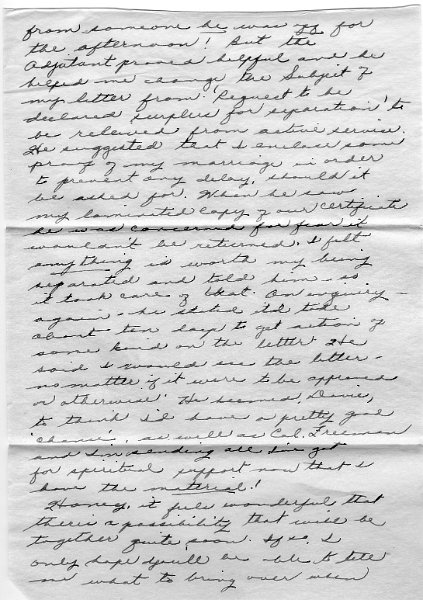 from someone he was off for
the afternoon! But the
Adjutant proved helpful and he
helped me change the Subject of
my letter from 'Request to be
declared surplus for separation' to
be relieved from active service.
He suggested that I enclose some
proof of my marriage in order
to prevent any delay, should it
be asked for. When he saw
my laminated copy of our Certificate
he was concerned for fear it
wouldn't be returned. I felt
anything is worth my being
separated and told him so
it took care of that. On inquiry
again - he stated it'd take
about ten days to get action of
some kind on the letter. He
said I would see the letter -
no matter if it were to be approved
or otherwise. He seemed,
to think I'd have a pretty good
'chance', as well as Col. Freeman
and I'm sending all I've got
for spiritual support now that I
have the material!
Honey, it feels wonderful that
there's a possibility that we'll be
together quite soon. If so, I
only hope you'll be able to tell
me what to bring over when